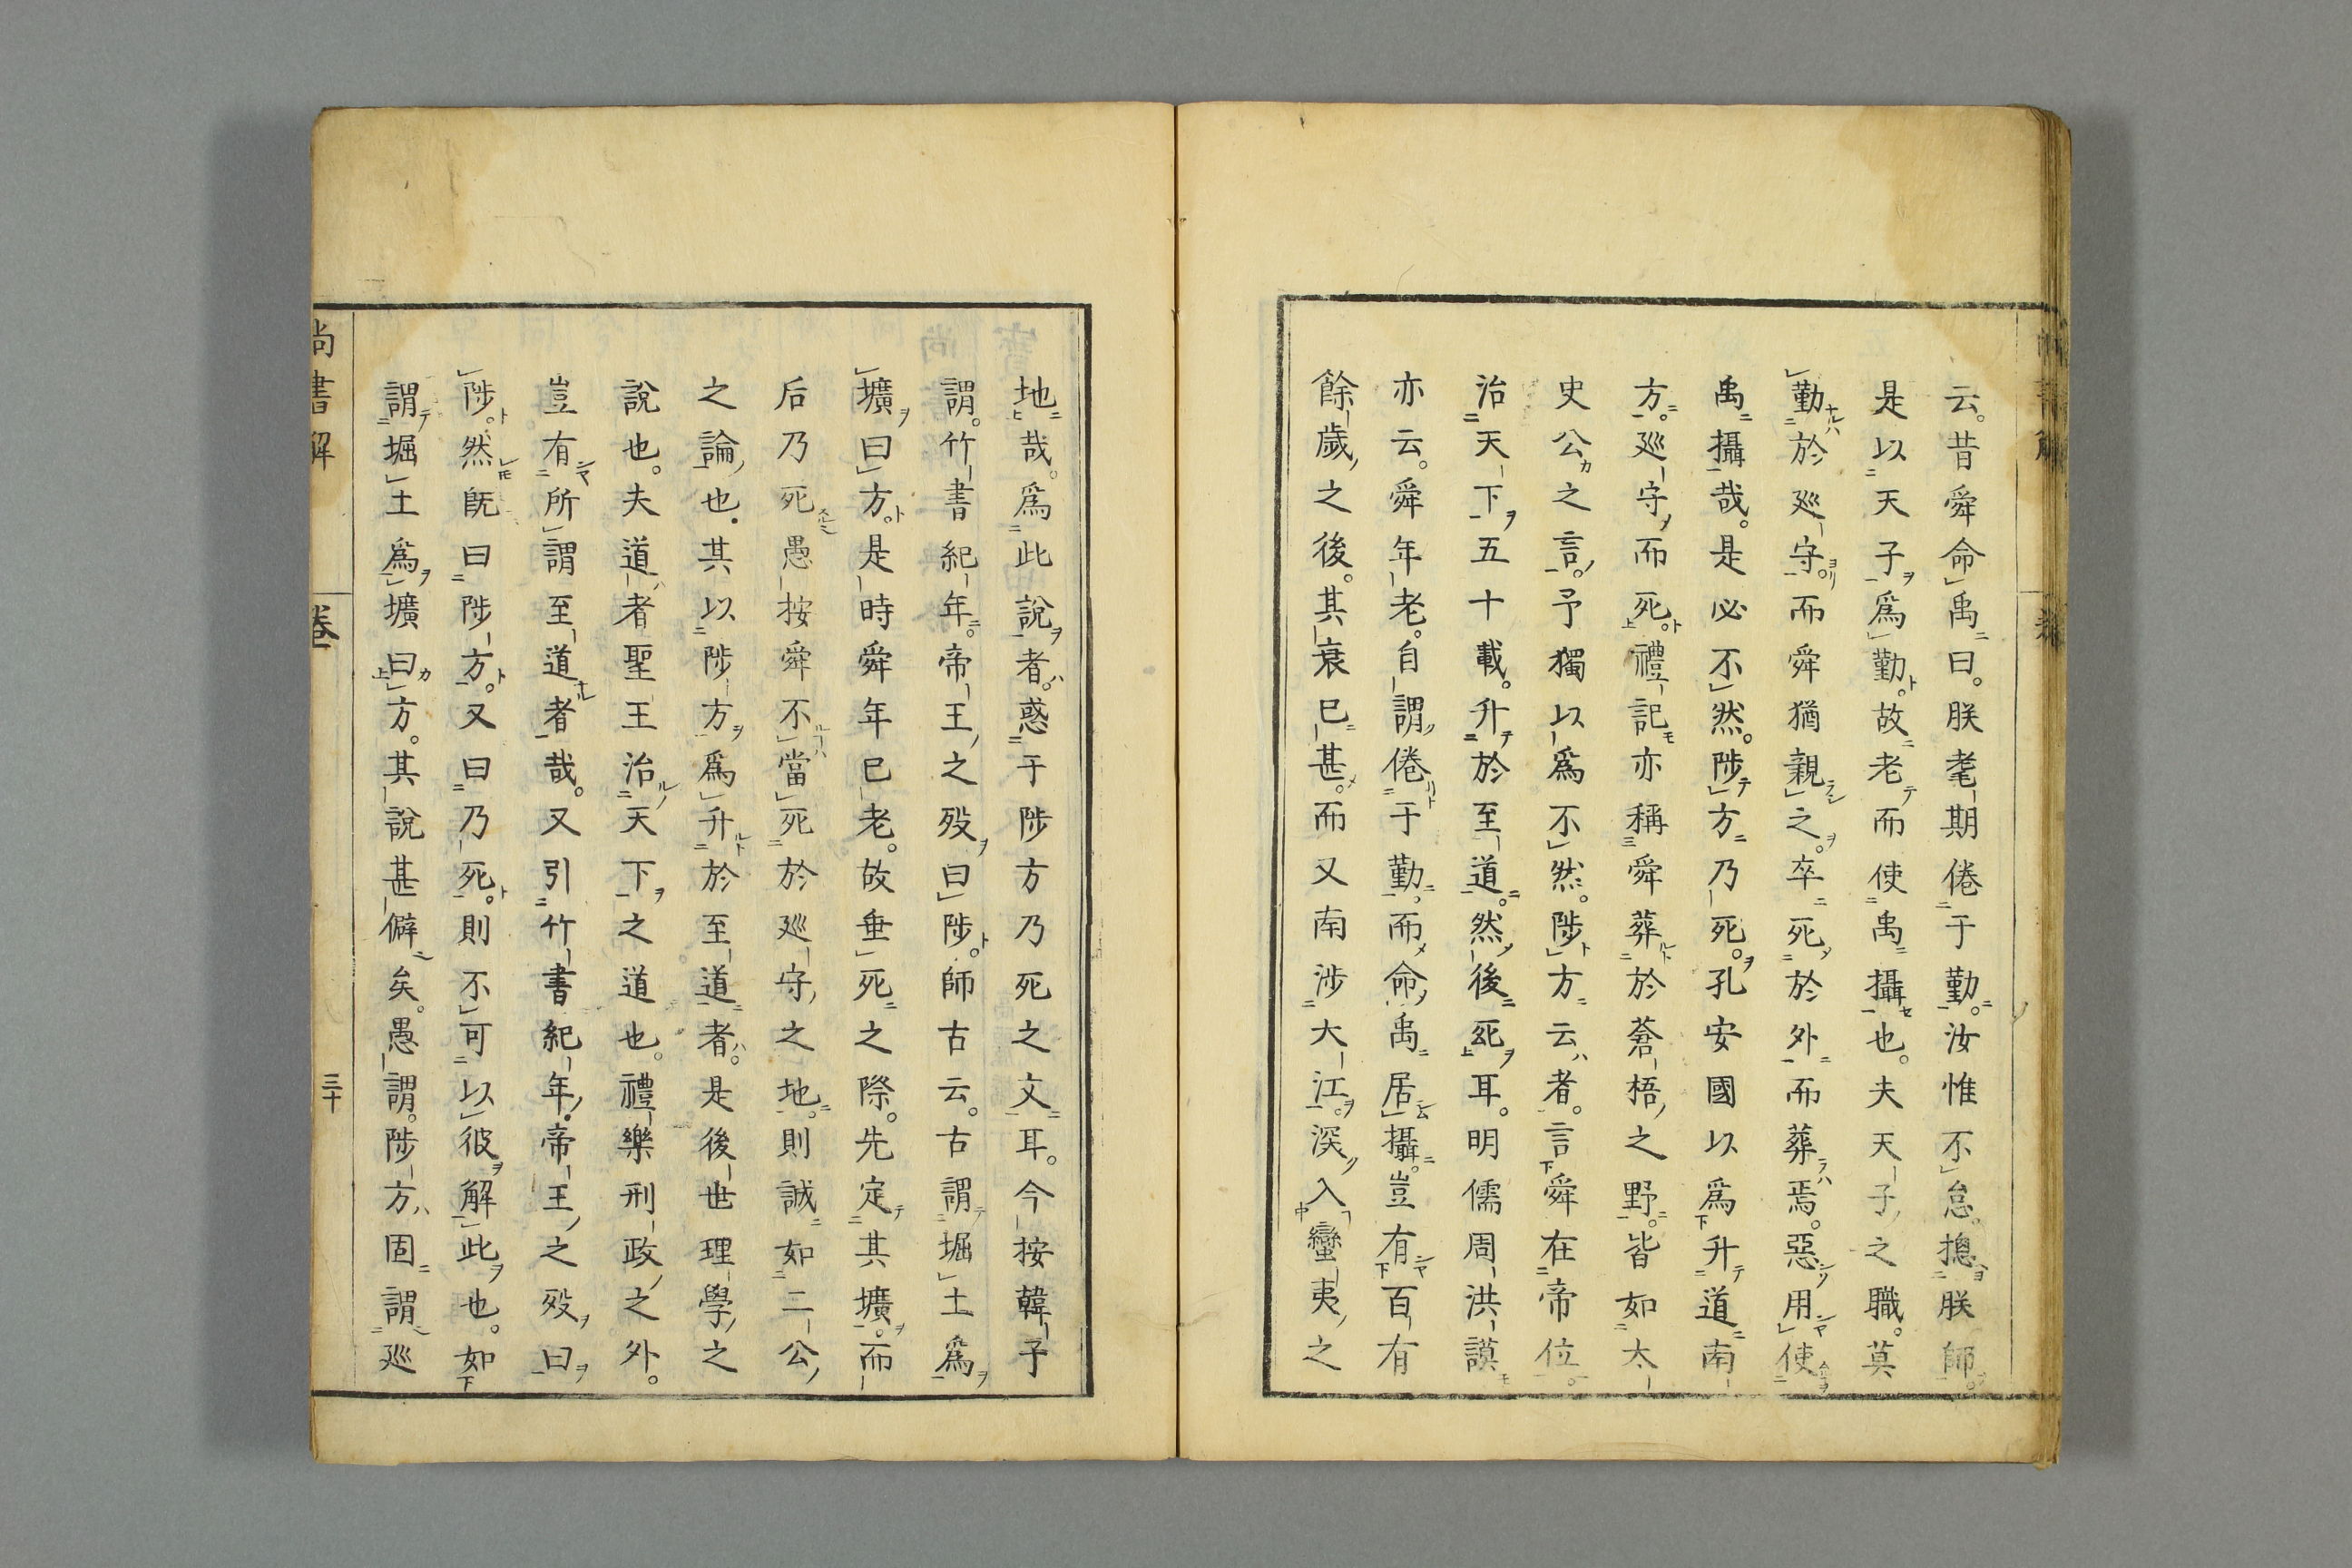 云。昔舜命禹曰。朕耄期倦于勤。汝惟不怠。摠朕師。
是以天子爲勤。故老而使禹攝也。夫天子之職。莫
勤於巡守。而舜猶親之。卒死於外。而葬焉。惡用使
禹攝哉。是必不然。陟方乃死。孔安國以爲升道南
方。巡守而死。禮記亦稱舜葬於蒼梧之野。皆如太
史公之言。予獨以爲不然。陟方云者。言舜在帝位。
治天下。五十載。升於至道。然後死耳。明儒周洪謨
亦云。舜年老。自謂倦于勤。而命禹居攝。豈有百有
餘歲之後。其衰已甚。而又南涉大江。深入蠻夷之
地哉。爲此說者。惑于陟方乃死之文耳。今按韓子
謂。竹書紀年。帝王之歿曰陟。師古云。古謂堀土爲
壙曰方。是時舜年已老。故垂死之際。先定其壙。而
后乃死。愚按舜不當死於巡守之地。則誠如二公
之論也。其以陟方爲升於至道者。是後世理學之
說也。夫道者聖王治天下之道也。禮樂刑政之外。
豈有所謂至道者哉。又引竹書紀年。帝王之歿曰
陟。然既曰陟方。又曰乃死。則不可以彼解此也。如
謂堀土爲壙曰方。其說甚僻矣。愚謂。陟方固謂巡
尚書解
卷一
三十